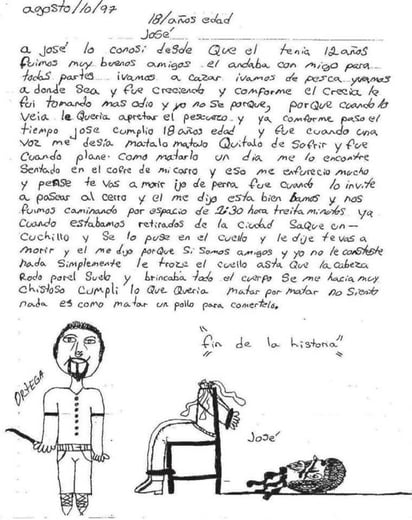 agosto/10/97
18/años edad
José
a José lo conosi desde Que el tenia 12 años
fuimos muy buenos amigos el andaba con migo para
todas partes ivamos a cazar ivamos de pesca yvamos
a donde Sea y fue Creciendo y comforme el Crecia le
fui tomando mas odio y yo no se porque, porque cuando lo
veia le Queria apretar el pescuezo y ya comforme paso el
tiempo Jose cumplio 18 años edad y fue cuando una
voz me desia matalo matalo Quitalo de Sofrir y fue
Cuando plane como matarlo un dia me lo encontre
Sentado en el cofre de mi carro y eso me enfurecio mucho
y pense te vas a morir ijo de perra fue cuando lo invite
a pasear al cerro y el me dijo esta bien bamos y nos
fuimos caminando por espacio de 2:30 hora treita minutos ya
Cuando estabamos retirados de la ciudad Saque un-
Cuchillo y Se lo puse en el cuello y le dije te vas a
morir y el me dijo porque Si Somos amigos y yo no le consteste
nada Simplemente le troze el cuello asta Que la cabeza
Rodo por el Suelo y brincaba todo el cuerpo Se me hacia muy
Chistoso Cumpli lo Que Queria matar por matar no Siento
nada es como matar un pollo para comertelo.
"fin de la historia"
ORTEGA
José